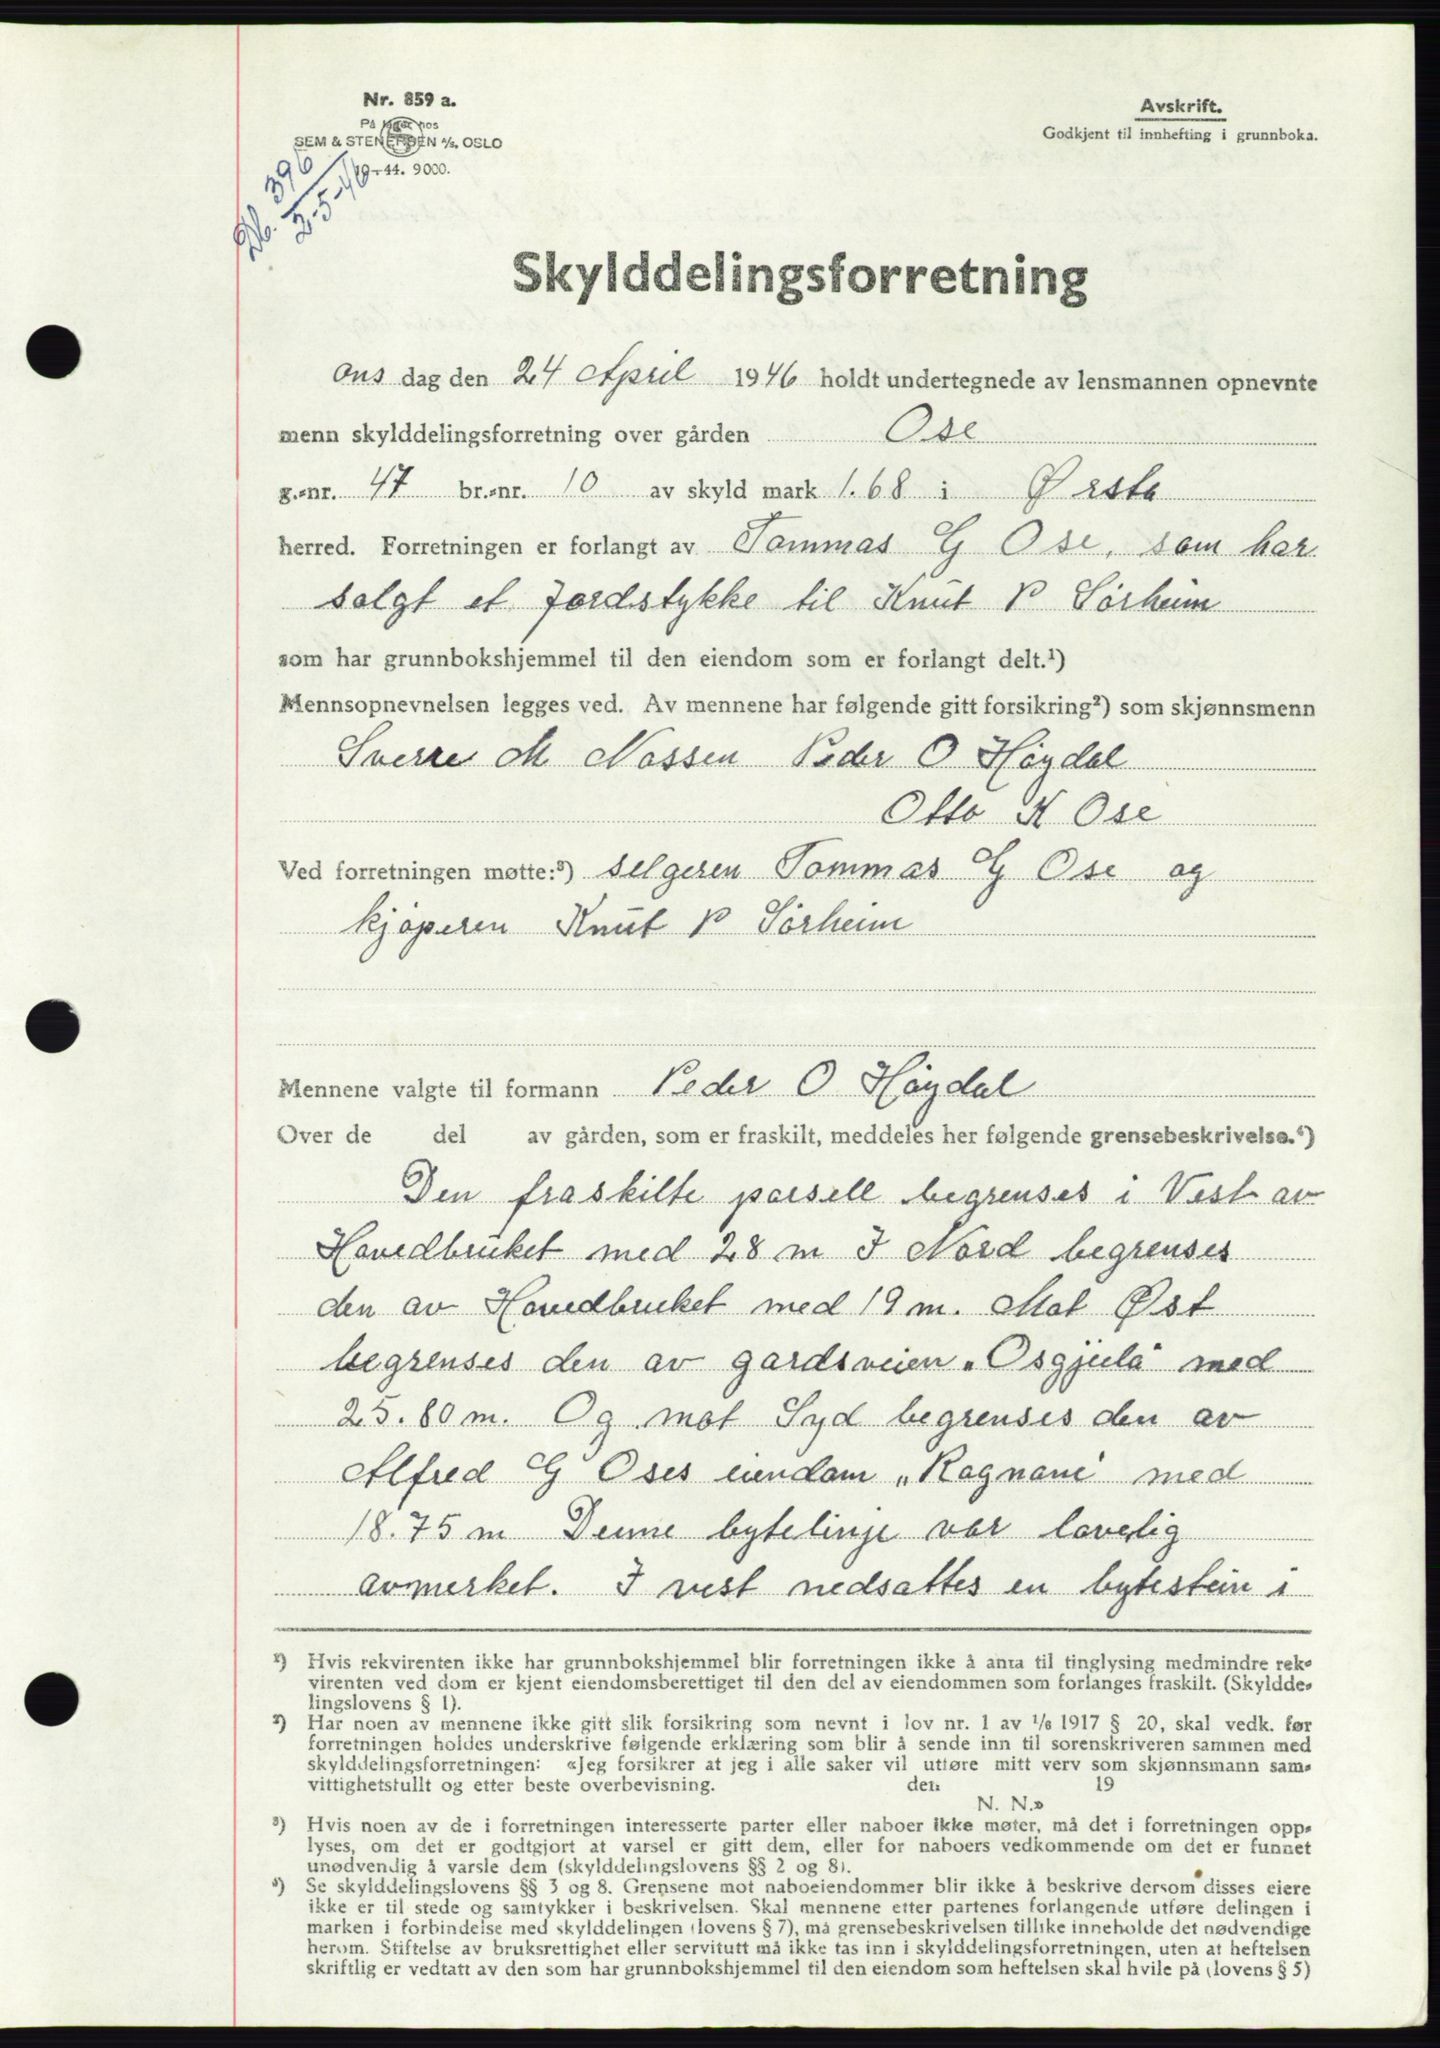 Nr. 859 a.
På lager hos
SEM & STENERSEN A/S, OSLO
10-44. 9000.
Db. 396
2-5-46
Avskrift.
Godkjent til innhefting i grunnboka.
Skylddelingsforretning
Ons dag den 24 April 1946 holdt undertegnede av lensmannen opnevnte
menn skylddelingsforretning over gården Ose
g.-nr. 47 br.-nr. 10 av skyld mark 1.68 i Ørsta
herred. Forretningen er forlangt av Tommas G Ose, som har
solgt et Jordstykke til Knut P Sørheim
som har grunnbokshjemmel til den eiendom som er forlangt delt.¹)
Mennsopnevnelsen legges ved. Av mennene har følgende gitt forsikring²) som skjønnsmenn
Sverre M Nossen Peder O Høydal
Otto K Ose
Ved forretningen møtte:³) selgeren Tommas G Ose og
kjøperen Knut P Sørheim
Mennene valgte til formann Peder O Høydal
Over de del av gården, som er fraskilt, meddeles her følgende grensebeskrivelse.⁴)
Den fraskilte parsell begrenses i Vest av
Hovedbruket med 28 m I Nord begrenses
den av Hovedbruket med 19 m. Mot Øst
begrenses den av gardsveien „Osgjula" med
25.80 m. Og mot Syd begrenses den av
Alfred G Oses eiendom „Ragnani" med
18.75 m Denne bytelinje var lovelig
avmerket. I vest nedsattes en bytestein i
¹) Hvis rekvirenten ikke har grunnbokshjemmel blir forretningen ikke å anta til tinglysing medmindre rek-
virenten ved dom er kjent eiendomsberettiget til den del av eiendommen som forlanges fraskilt. (Skyldde-
lingslovens § 1).
²) Har noen av mennene ikke gitt slik forsikring som nevnt i lov nr. 1 av 1/6 1917 § 20, skal vedk. før
forretningen holdes underskrive følgende erklæring som blir å sende inn til sorenskriveren sammen med
skylddelingsforretningen: «Jeg forsikrer at jeg i alle saker vil utføre mitt verv som skjønnsmann sam-
vittighetsfullt og etter beste overbevisning. den 19
N. N.»
³) Hvis noen av de i forretningen interesserte parter eller naboer ikke møter, må det i forretningen opp-
lyses, om det er godtgjort at varsel er gitt dem, eller for naboers vedkommende om det er funnet
unødvendig å varsle dem (skylddelingslovens §§ 2 og 8).
⁴) Se skylddelingslovens §§ 3 og 8. Grensene mot naboeiendommer blir ikke å beskrive dersom disses eiere
ikke er til stede og samtykker i beskrivelsen. Skal mennene etter partenes forlangende utføre delingen i
marken i forbindelse med skylddelingen (lovens § 7), må grensebeskrivelsen tillike inneholde det nødvendige
herom. Stiftelse av bruksrettighet eller servitutt må ikke tas inn i skylddelingsforretningen, uten at heftelsen
skriftlig er vedtatt av den som har grunnbokshjemmel til den eiendom som heftelsen skal hvile på (lovens § 5)